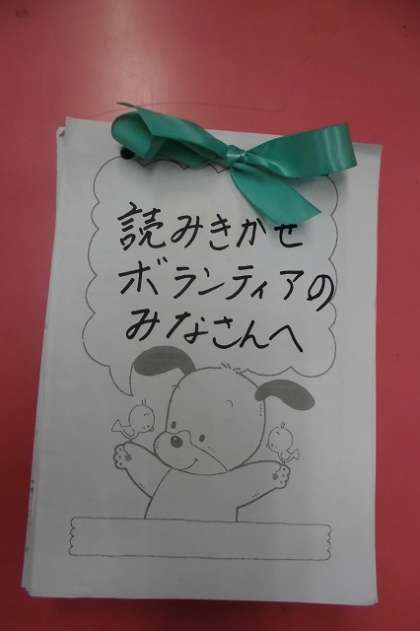 読みきかせ
ボランティアの
みなさんへ